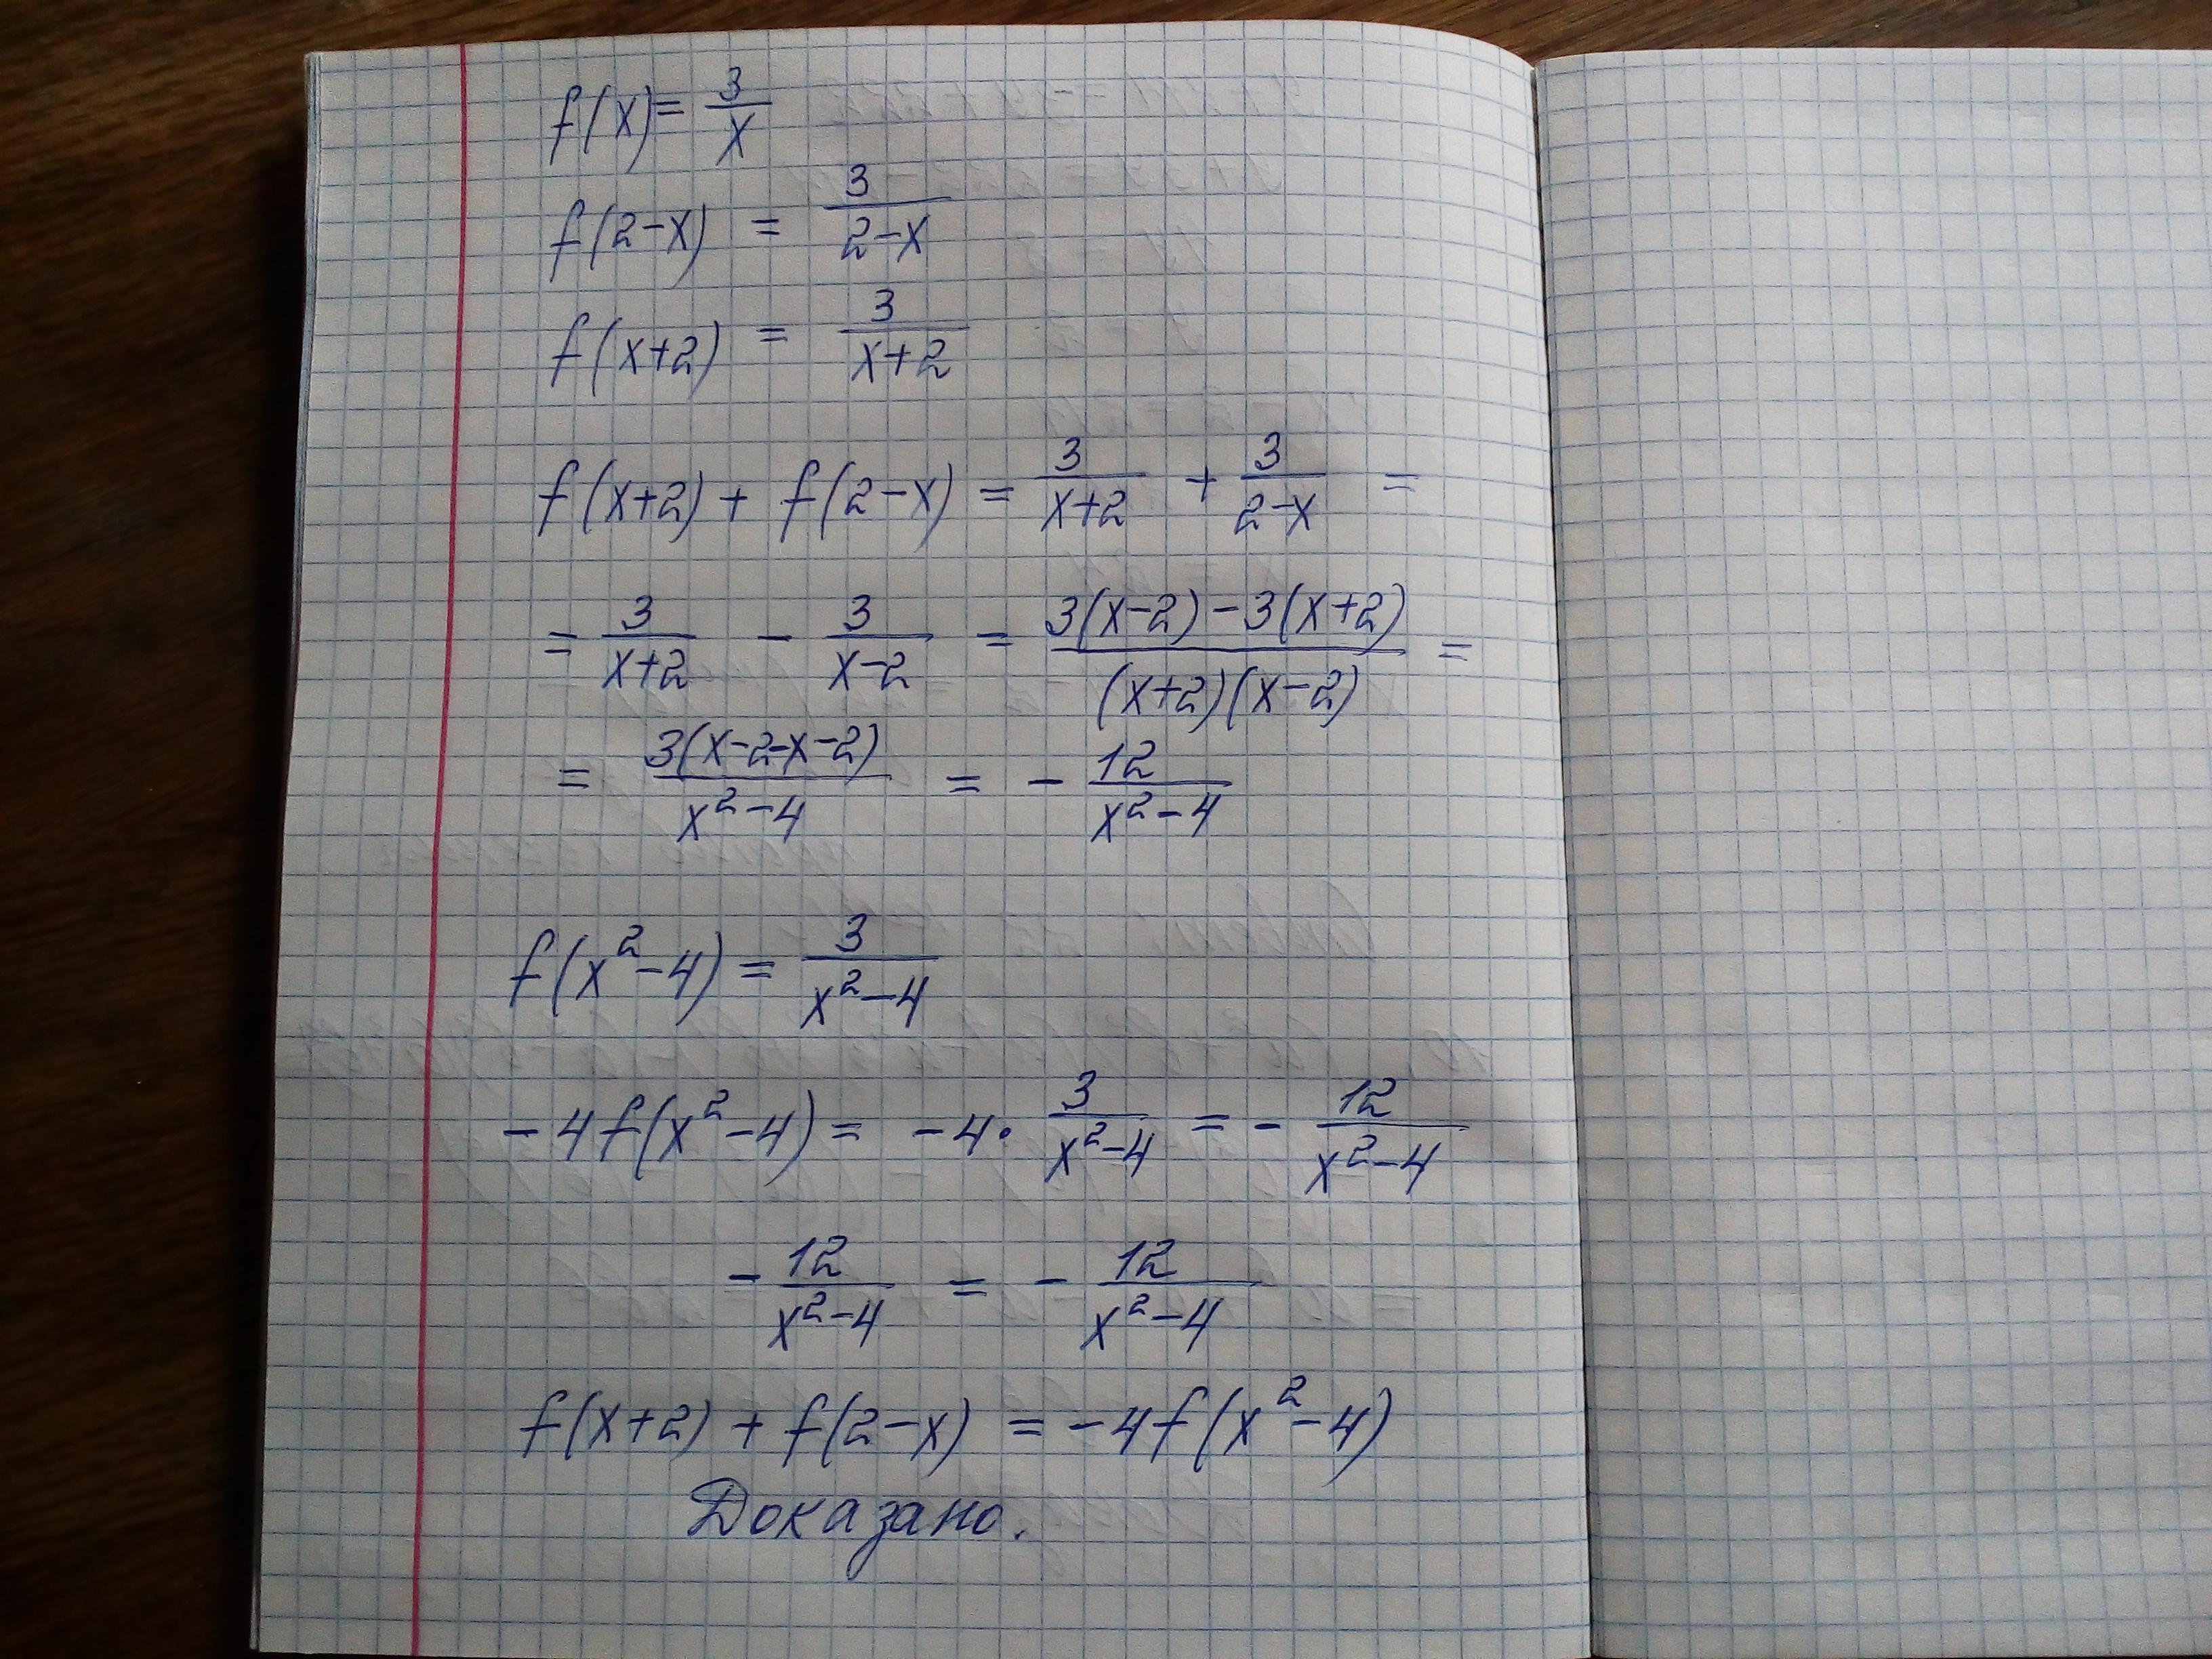 f(x) = 3/x
f(2-x) = 3/(2-x)
f(x+2) = 3/(x+2)
f(x+2) + f(2-x) = 3/(x+2) + 3/(2-x) =
= 3/(x+2) - 3/(x-2) = (3(x-2)-3(x+2))/((x+2)(x-2)) =
= 3(x-2-x-2)/(x²-4) = - 12/(x²-4)
f(x²-4) = 3/(x²-4)
-4f(x²-4) = -4· 3/(x²-4) = - 12/(x²-4)
- 12/(x²-4) = - 12/(x²-4)
f(x+2) + f(2-x) = -4f(x²-4)
Доказано.